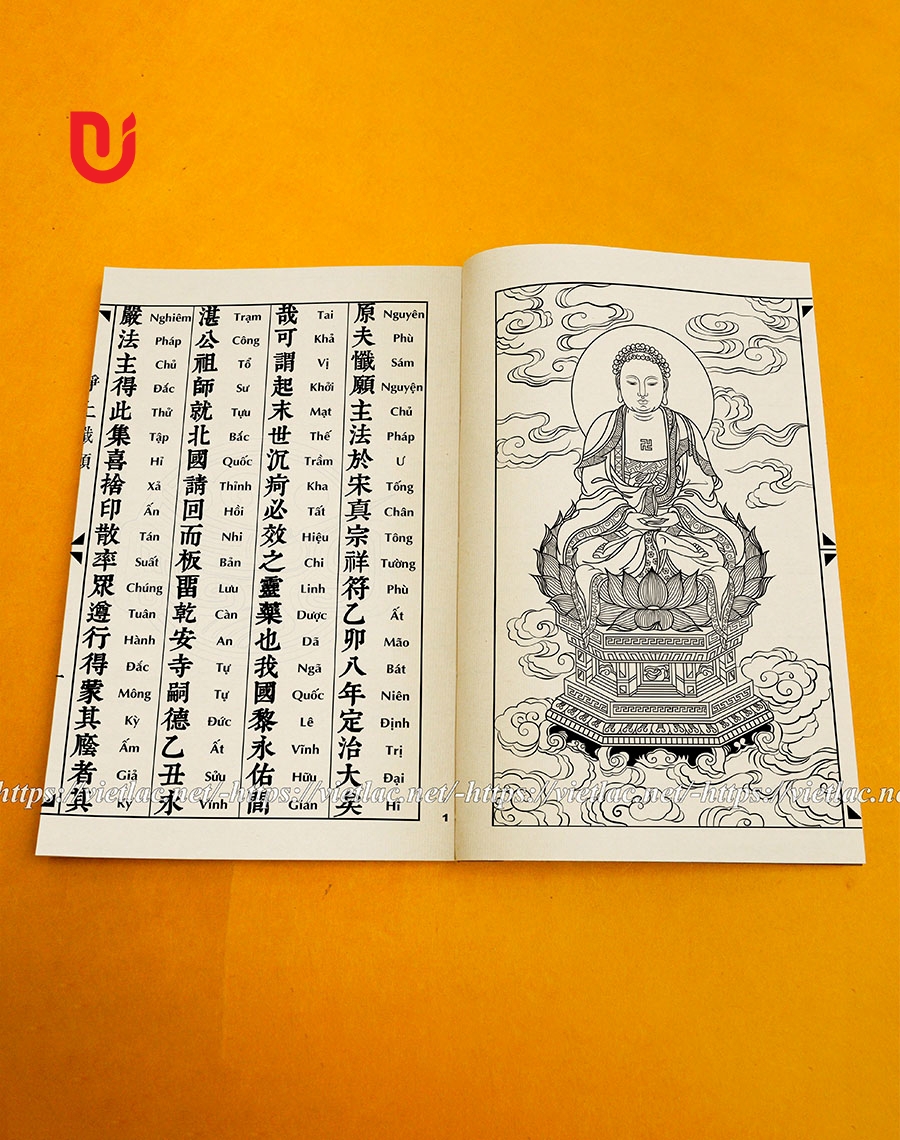 原夫懺願主法於宋真宗祥符乙卯八年定治大矣
Nguyên Phù Sám Nguyện Chủ Pháp Ư Tống Chân Tông Tường Phù Ất Mão Bát Niên Định Trị Đại Hĩ
哉可謂起末世沉疴必效之靈藥也我國黎永佑間
Tai Khả Vị Khởi Mạt Thế Trầm Kha Tất Hiệu Chi Linh Dược Dã Ngã Quốc Lê Vĩnh Hữu Gian
湛公祖師就北國請回而板畱乾安寺嗣德乙丑永
Trạm Công Tổ Sư Tựu Bắc Quốc Thỉnh Hồi Nhi Bản Lưu Càn An Tự Tự Đức Ất Sửu Vĩnh
嚴法主得此集喜捨印散率眾遵行得蒙其廕者其
Nghiêm Pháp Chủ Đắc Thử Tập Hỉ Xả Ấn Tán Suất Chúng Tuân Hành Đắc Mông Kỳ Ấm Giả Kỳ
1
卍
https://vietlac.net/-https://vietlac.net/-https://vietlac.net/